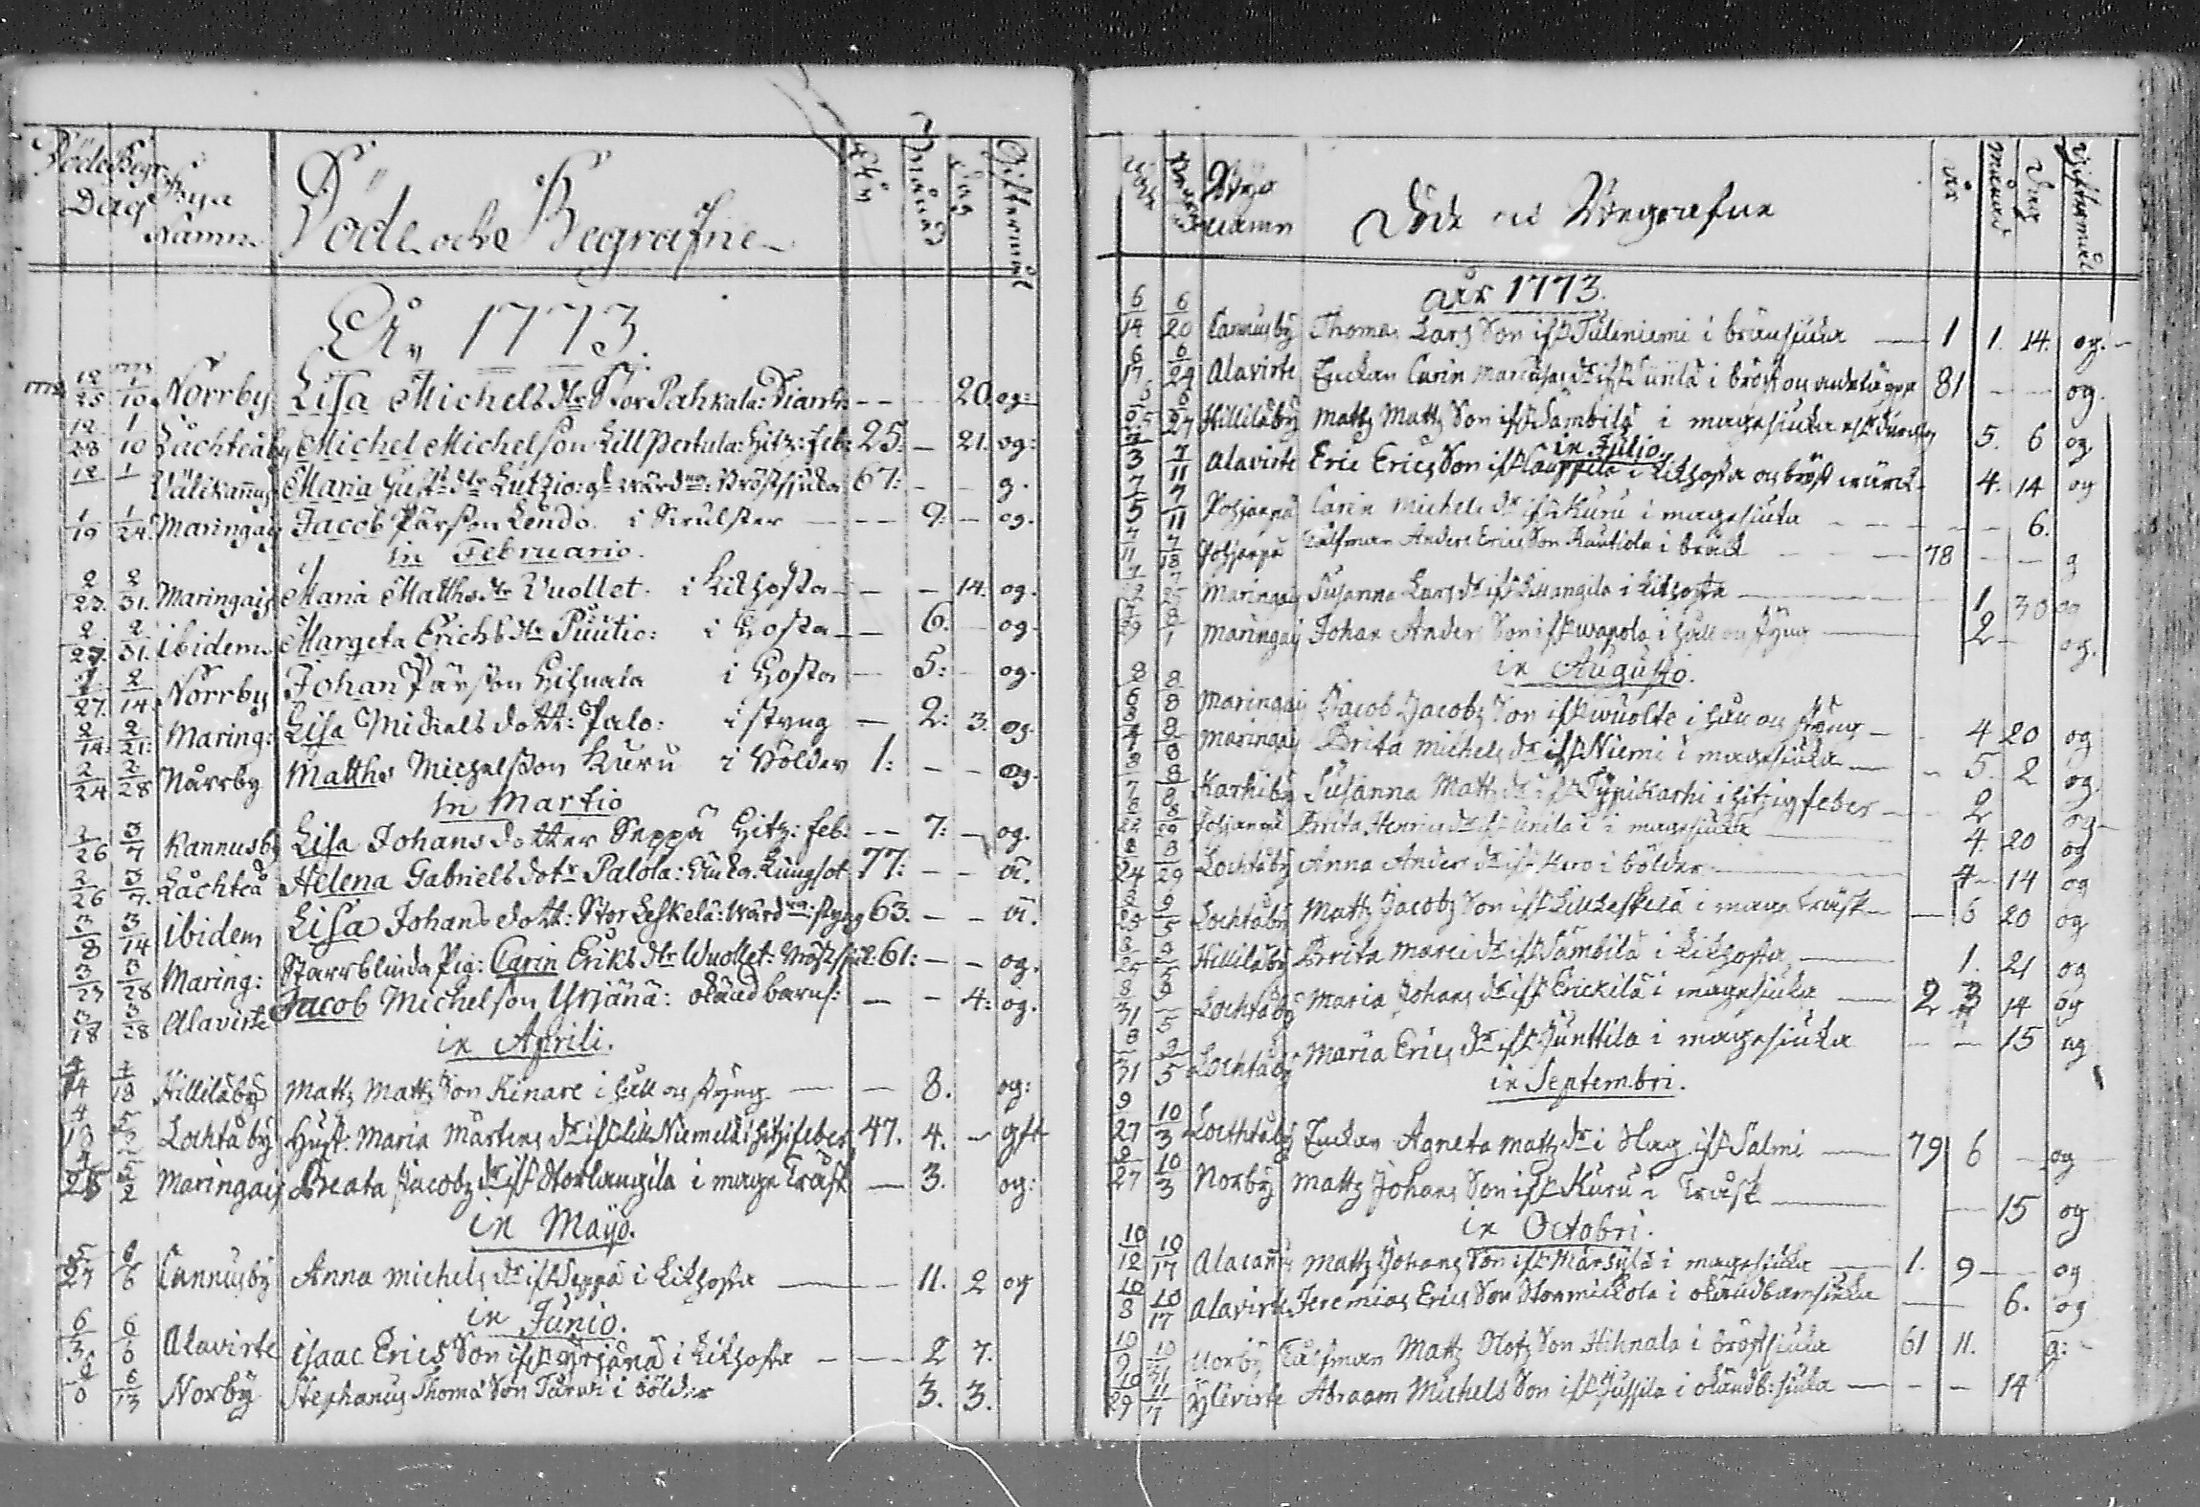 Döde Begr. Dag
Bya Namn
Döde oche Begrafne
År
Månad
Dag
Giftermål
År 1773.
1772 12/25 1773 1/10 Norrby Lisa Michels dtr Stor Pahkala: Diarrh: -- 20. og:
12/28 1/10 Låchteåby Michel Michelson Lill Pertula: Hitz: feb: 25: — 21. og:
12 1 Välikannus Maria Gust: dtr Lutzio: Bröstsjuka 67: — g.
1/19 1/24 Maringais Jacob Pärsson Lendo. i -- 9: — og.
in Februario.
2/23. 2/31. Maringais Maria Matths dtr Vuollet. i Kikhosta — — 14. og.
2/27. 2/31. ibidem Margeta Erichs dtr Puutio: i Hosta — 6. og.
1/27. 2/14 Norrby Johan Pärsson Hihnala i Hosta — 5: og.
2/14: 2/21: Maring: Lisa Michels dott: Palo: i styng — 2: 3. og.
2/24 2/28 Nårrby Matths Michelsson Kuru i Bölder 1: — — og.
in Martio
2/26 3/7 Kannusby Lisa Johans dotter Seppä Hitz: feb: -- 7: — og.
2/26 3/7. Låchteå Helena Gabriels dotr Palola: Enka. Lungsot 77: — —
3/8 3/14 ibidem Lisa Johans dott: Stor Leskelä: styng 63. — —
3/23 3/28 Maring: Starrblinda Pig: Carin Eriks dtr Wuollet: 61: — — og.
3/18 3/28 Alavirte Jacob Michelson Yrjänä: okänd barns: — — 4: og.
in Aprili.
4/14 4/18 Hilliläby Matts Matts Son Kinare i håll och styng — — 8. og:
4/18 5/2 Lochtå by Hust: Maria Mårtens dr ifr Lill Niemelä i hitzifeber 47. 4. — gft
4/25 5/2 Maringais Beata Jacobs dr ifr Storlangila i magn Träsk — 3. og:
in Mayo.
5/27 6/6 Cannusby Anna Michels dr ifr Seppä i Kikhosta — 11. 2 og
in Junio.
6/3 6/6 Alavirte Isaac Erics Son ifr Yrjänä i Kikhosta — 2 7.
6/13 Norby Stephanus Thomæ Son Turvi i bölder 3. 3.
Bya namn
Döde och Begrafne
år
Månad
Dag
Giftermål
år 1773.
6/14 6/20 Cannusby Thomas Lars Son ifr Tuliniemi i bränsjuka — 1 1. 14. og.
6/17 6/24 Alavirte Enckan Carin Marcus dr ifr i bröst och 81 — — og.
6/25 6/27 Hilliläby Matts Matts Son ifr Sämbilä i magesjuka 5. 6 og
in Julio.
7/3 7/11 Alavirte Eric Erics Son ifr Cauppila i Kikhosta och bröst 4. 14 og
7/5 7/11 Pohjanpä Carin Michels dr ifr Kuru i magesjuka 6.
7/11 7/18 Pohjanpä Tålfman Anders Erics Son Rautiola i bråck 78 — — g
7/25 Maringais Susanna Lars dr ifr Lill angila i Kikhosta — 1 30 og
7/29 8/1 Maringais Johan Anders Son ifr wapola i håll och styng — 2 — og.
in Augusto.
8/6 8/8 Maringais Jacob Jacobs Son ifr wuolte i håll och styng — 4 20 og
8/7 8/8 Maringais Brita Michels dr ifr Niemi i magesjuka — 5. 2 og
8/7 8/8 Karhiby Susanna Matts dr ifr Typikarhi i hitzigfeber — 2 og
8/22 8/29 Pohjanpä Brita Henrics dr ifr Unila i magesjuka 4 20 og
8/24 8/29 Lochtåby Anna Anders dr ifr Hero i bölder — 4 14 og
8/25 9/5 Lochtåby Matts Jacobs Son ifr Lill Leskelä i mage Träsk — 5 20 og
8/25 9/5 Hilliläby Brita Marci dr ifr Sämbilä i Kikhosta — 1. 21 og
8/31 9/5 Lochtåby Maria Johans dr ifr Erickilä i magesjuka — 2 3 14 og
8/31 9/5 Lochtåby Maria Erics dr ifr Junttila i magesjuka — — 15 og
in Septembri.
9/27 10/3 Locthtåby Enckan Agneta Matts dr i Slag ifr Salmi — 79 6 — og
9/27 10/3 Norby Matts Johans Son ifr Kuru i Träsk — 15 og
in Octobri.
10/12 10/17 Alacannus Matts Johans Son ifr Märsylä i magesjuka 1. 9 — og
10/8 10/17 Alavirte Jeremias Erics Son Stormickola i okändbarnsjuka — 6. og
10/9 10/31 Norby Tålfman Matts Olofs Son Hihnala i bröstsjuka 61 11. g:
10/29 11/7 Ylivirte Abraam Michels Son ifr Jussila i okändb:sjuka — — 14